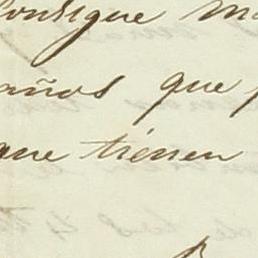 consigue
años que
que tienen